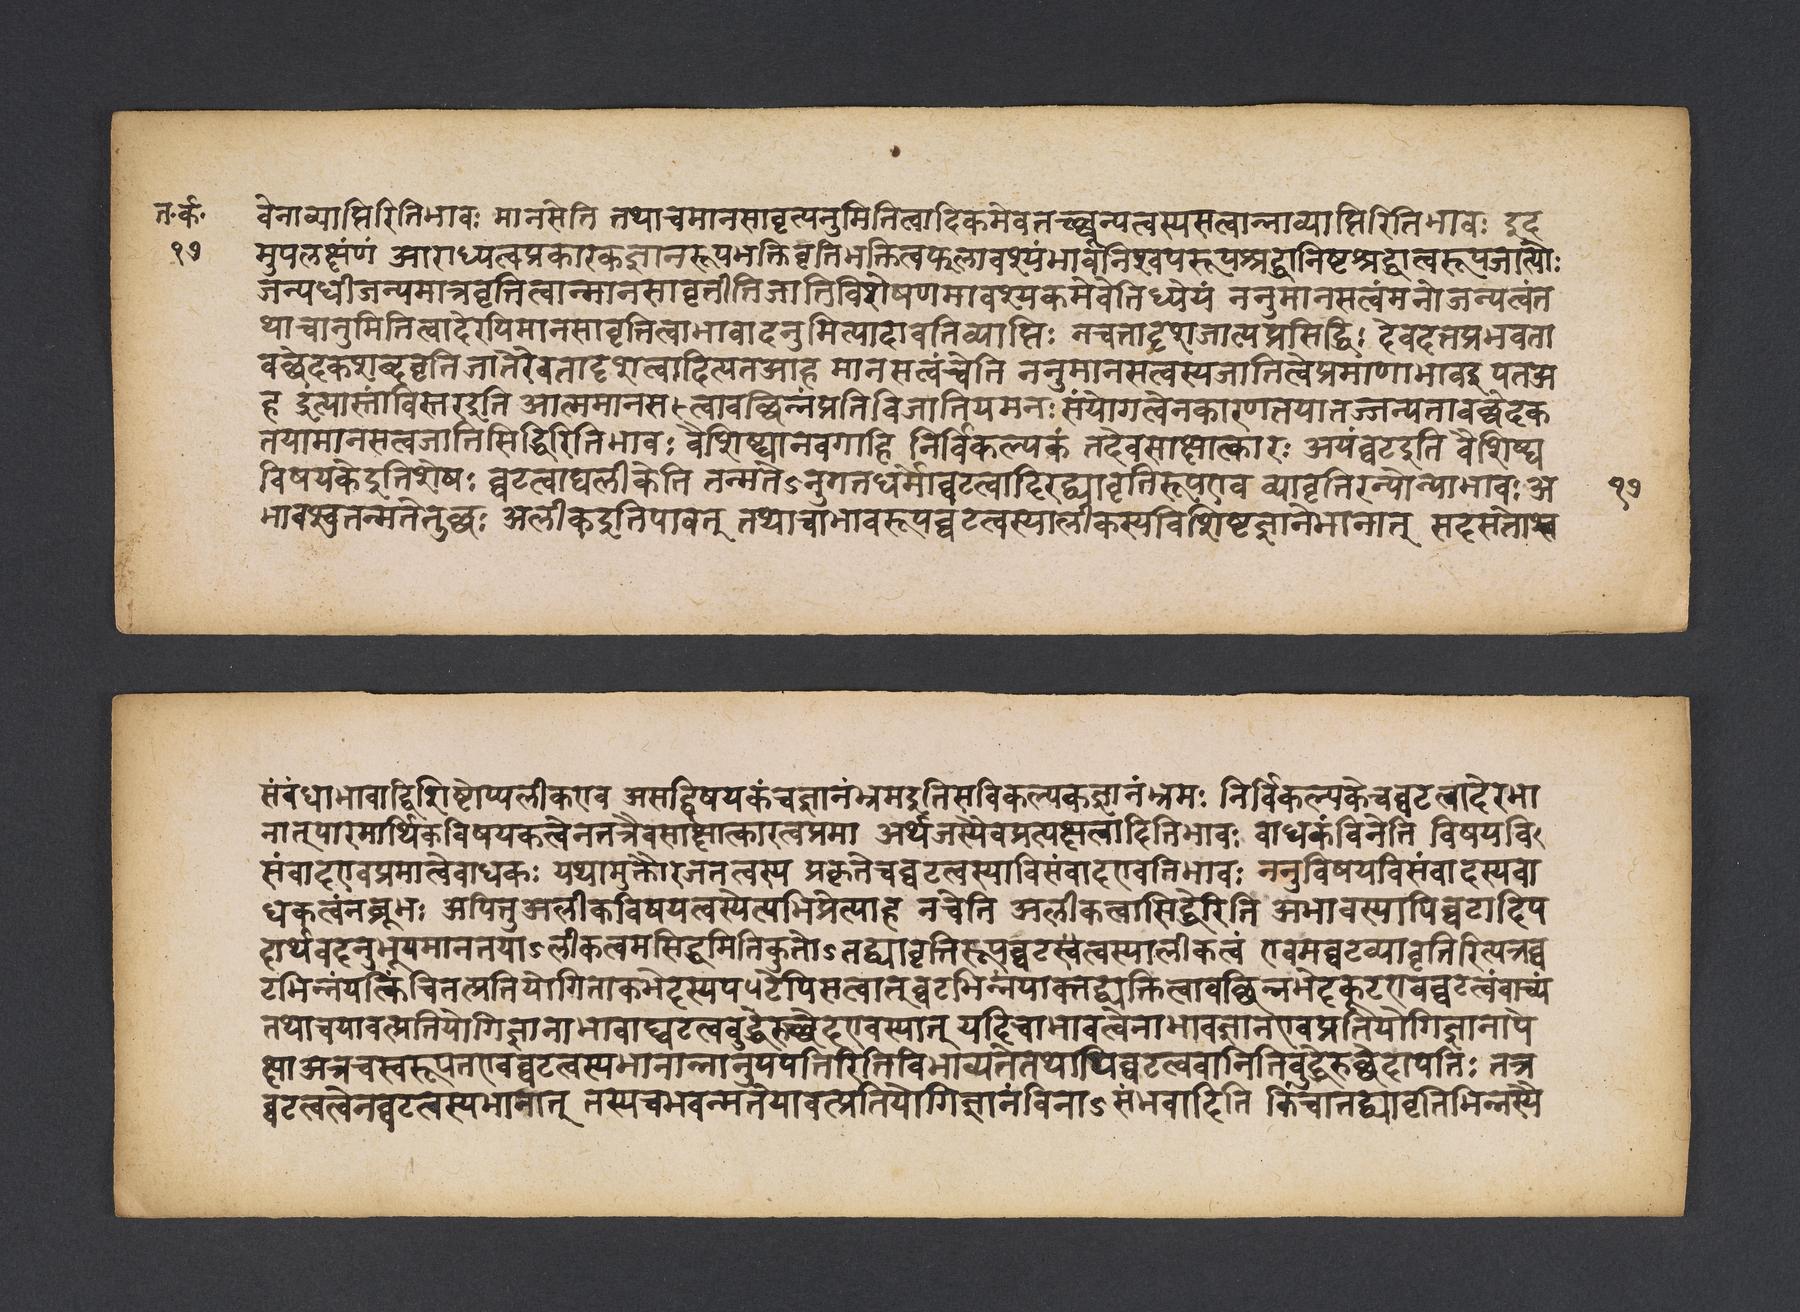 त॰र्क॰
१७
वेनाव्याप्तिरितिभावः मानसेति तथाचमानसावृत्यनुमितित्वादिकमेवतच्छून्यत्वस्यसत्वान्नाव्याप्तिरितिभावः इद
मुपलक्षणं आराध्यत्वप्रकारकज्ञानरूपभक्तिवृत्तिभक्तित्वफलावश्यंभावनिश्चयरूपश्रद्धानिष्टश्रद्धात्वरूपजात्योः
जन्यधीजन्यमात्रवृत्तित्वान्मानसावृत्तीतिजातिविशेषणमावश्यकमेवेतिध्येयं ननुमानसत्वंमनोजन्यत्वंत
थाचानुमितित्वादेरपिमानसावृत्तित्वाभावादनुमित्यादावतिव्याप्तिः नचतादृशजात्यप्रसिद्धिः देवदत्तप्रभवता
वच्छेदकशब्दवृत्तिजातेरेवतादृशत्वादित्यतआह मानसत्वंचेति ननुमानसत्वस्यजातित्वेप्रमाणाभावइ॒पतअ
ह इत्यास्तांविस्तरइति आत्ममानसत्वावच्छिन्नंप्रतिविजातियमनःसंयोगत्वेनकारणतयातज्जन्यतावच्छेदक
तयामानसत्वजातिसिद्धिरितिभावः वैशिष्ट्यानवगाहि निर्विकल्पकं तदेवसाक्षात्कारः अयंघटइति वैशिष्ट्य
विषयकेइतिशेषः घटत्वाद्यलीकेति तन्मतेऽनुगतधर्मोघटत्वादिरतद्व्यावृत्तिरूपएव व्यावृत्तिरन्योन्याभावः अ
१७
भावश्चतन्मतेतुच्छः अलीकइतिपावत् तथाचाभावरूपघटत्वस्यालीकस्यविशिष्टज्ञानेभानात् सदसतोश्च
संबंधाभावाद्विशिष्टोप्यलीकएव असद्विषयकंचज्ञानंभ्रमइतिसविकल्पकज्ञानंभ्रमः निर्विकल्पकेचघटत्वादेरभा
नात्पारमार्थिकविषयकत्वेनतत्रैवसाक्षात्कारत्वप्रमा अर्थजस्यैवप्रत्यक्षत्वादितिभावः वाधकंविनेति विषयवि
संवादएवप्रमात्वेवाधकः यथामुक्तौरजतत्वस्य प्रकृतेचघटत्वस्याविसंवादएवेतिभावः ननुविषयविसंवादस्यवा
धकत्वंनब्रूमः अपितुअलीकविषयत्वस्येत्यभिप्रेत्याह नचेति अलीकत्वासिद्धेरिति अभावस्यापिघटादिप
दार्थवदनुभूयमानतयाऽलीकत्वमसिद्धमितिकुतोऽतद्व्यावृत्तिरूपघटत्वस्यालीकत्वं एवमघटव्यावृत्तिरित्यत्रघ
टभिन्नंयत्किंचितत्प्रतियोगिताकभेदस्यपटेपिसत्वात्घटभिन्नंयावत्तद्व्यक्तित्वावच्छिन्नभेदकूटएवघटत्वंवाच्यं
तथाचयावत्प्रतियोगिज्ञानाभावाद्घटत्वबुद्धेरुच्छेदएवस्यात् यदिचाभावत्वेनाभावज्ञानएवप्रतियोगिज्ञानापे
क्षाअत्रचस्वरूपतएवघटत्वस्यभानान्नानुपपत्तिरितिविभाव्यतेतथापिघटत्ववानितिबुद्धेरुच्छेदापत्तिः तत्र
घटत्वत्वेनघटत्वस्यभानात् तस्यचभवन्मतेयावत्प्रतियोगिज्ञानंविनाऽसंभवादिति किंचातद्व्यावृत्तिभिन्नस्यै